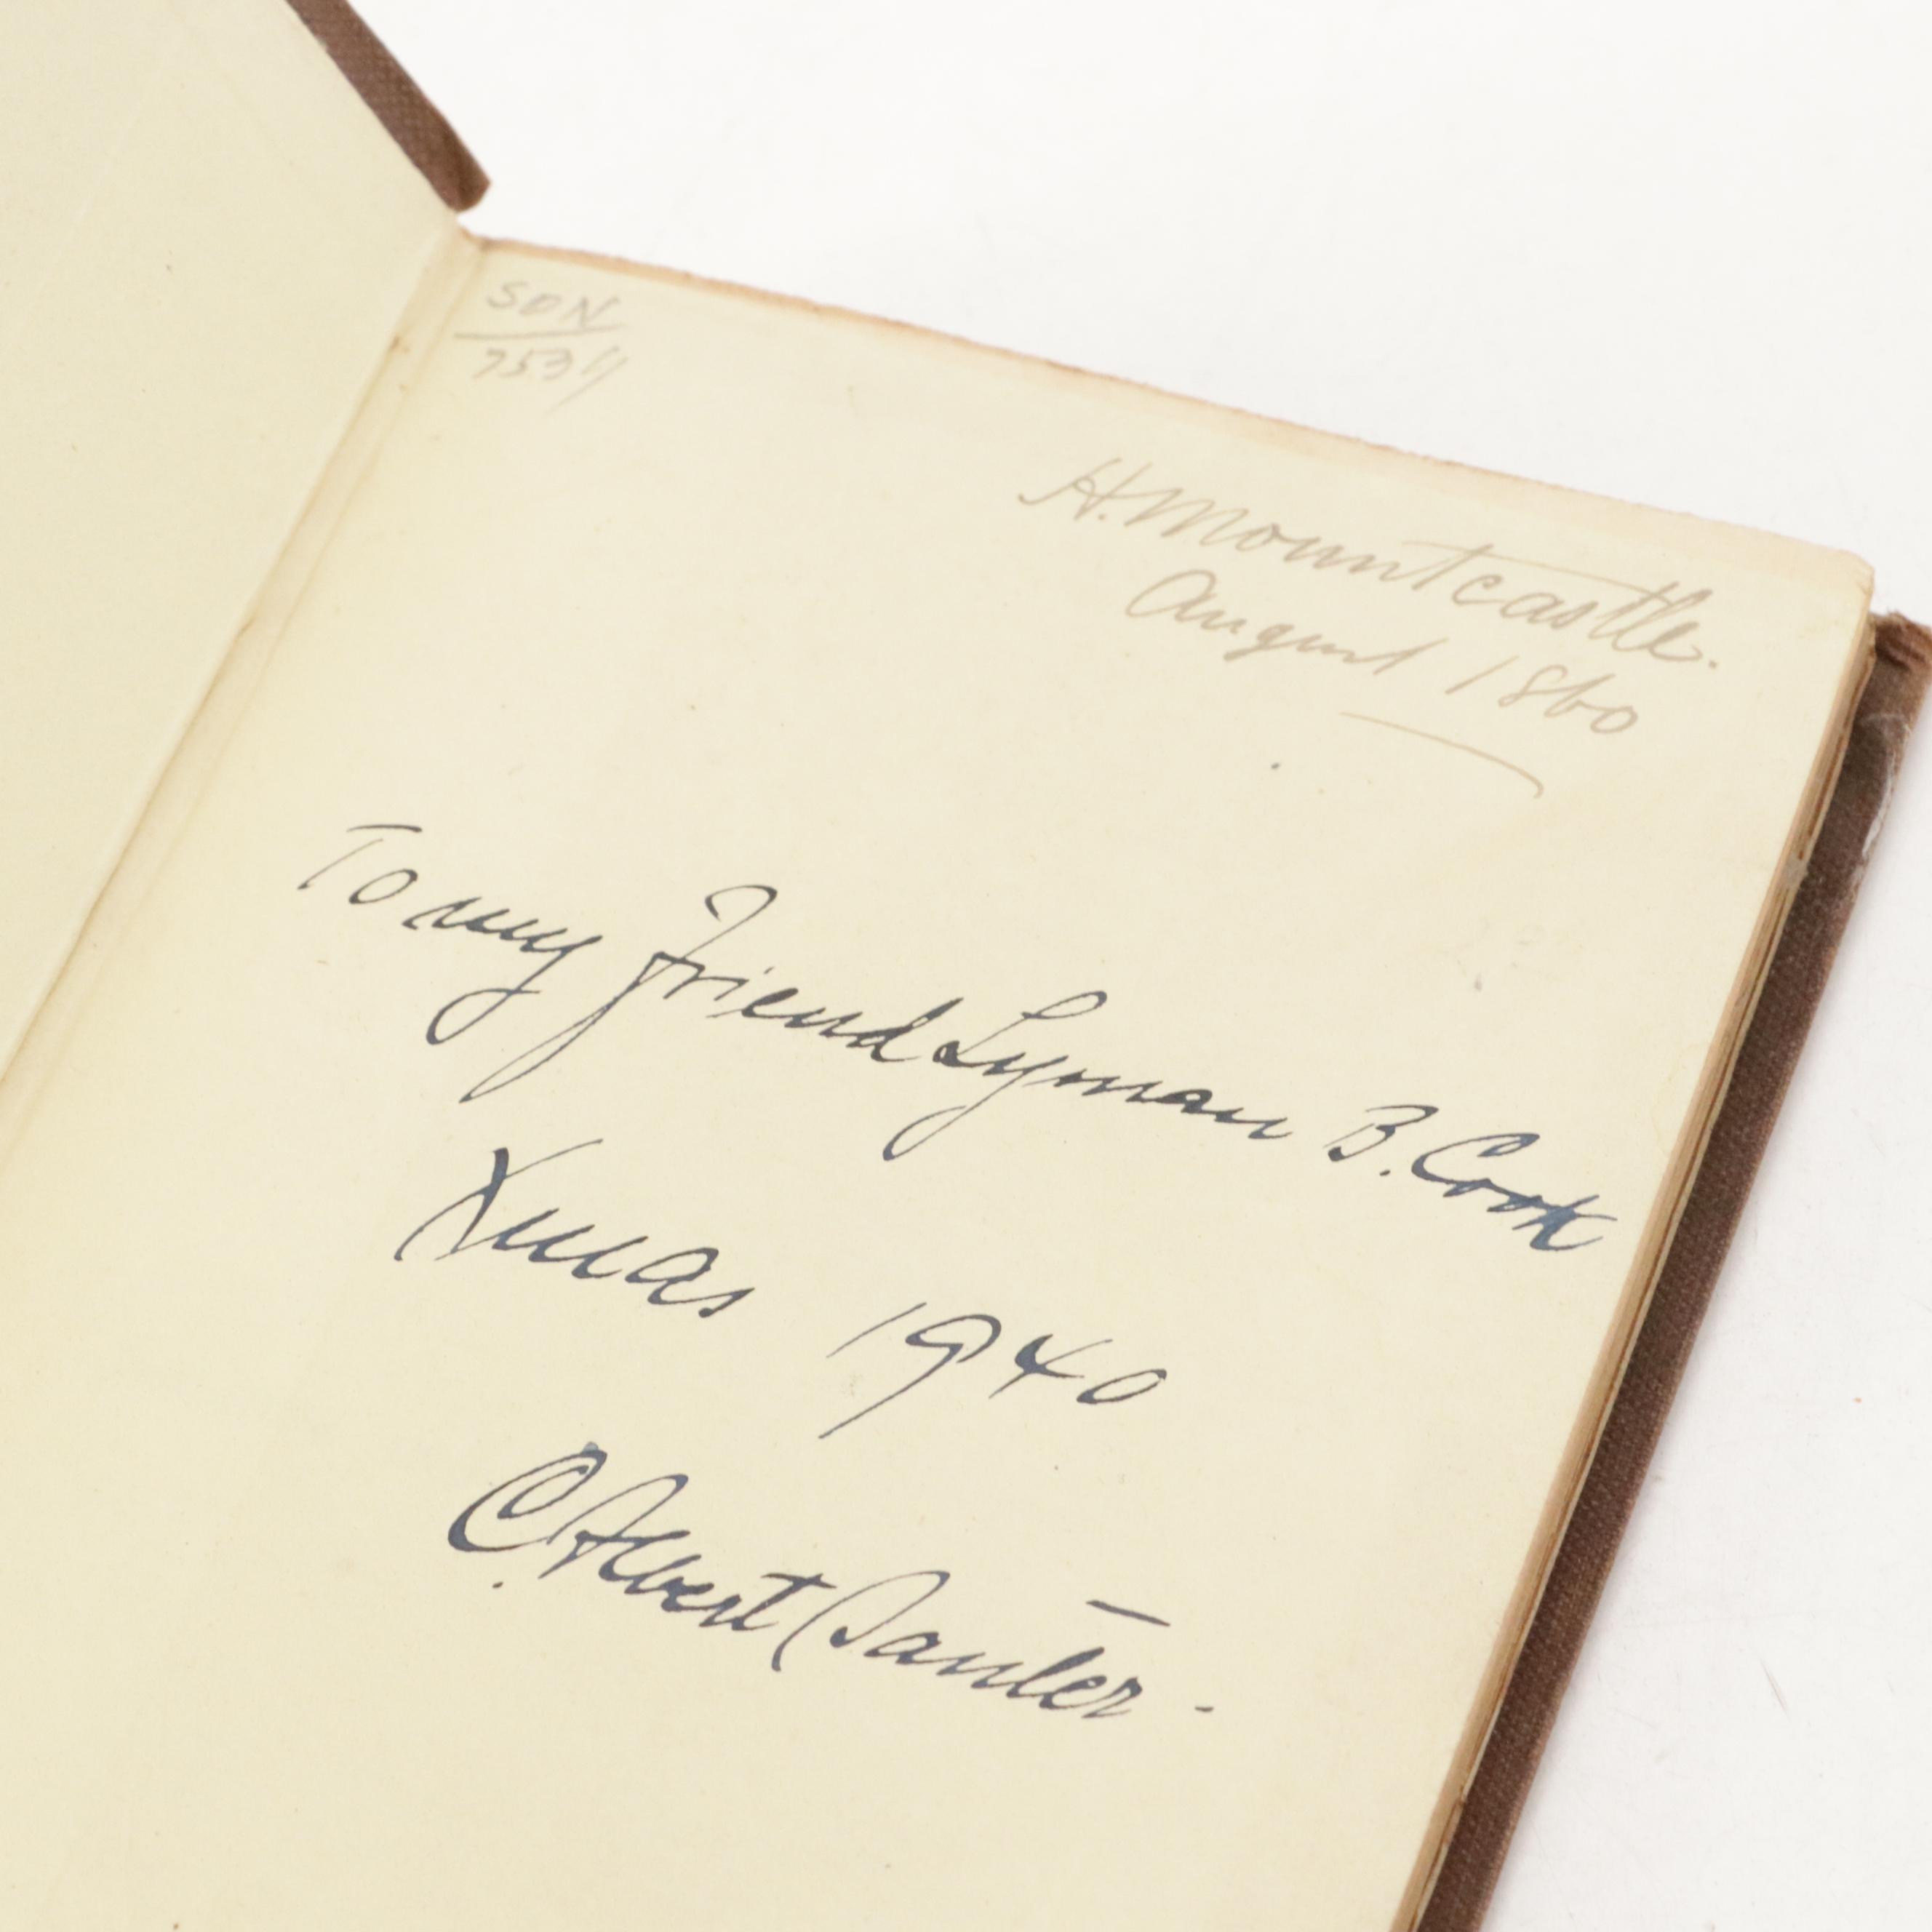 SON
H. Mountcastle.
August 1860
To my Friend Lyman B. Cook
Xmas 1940
C. Albert